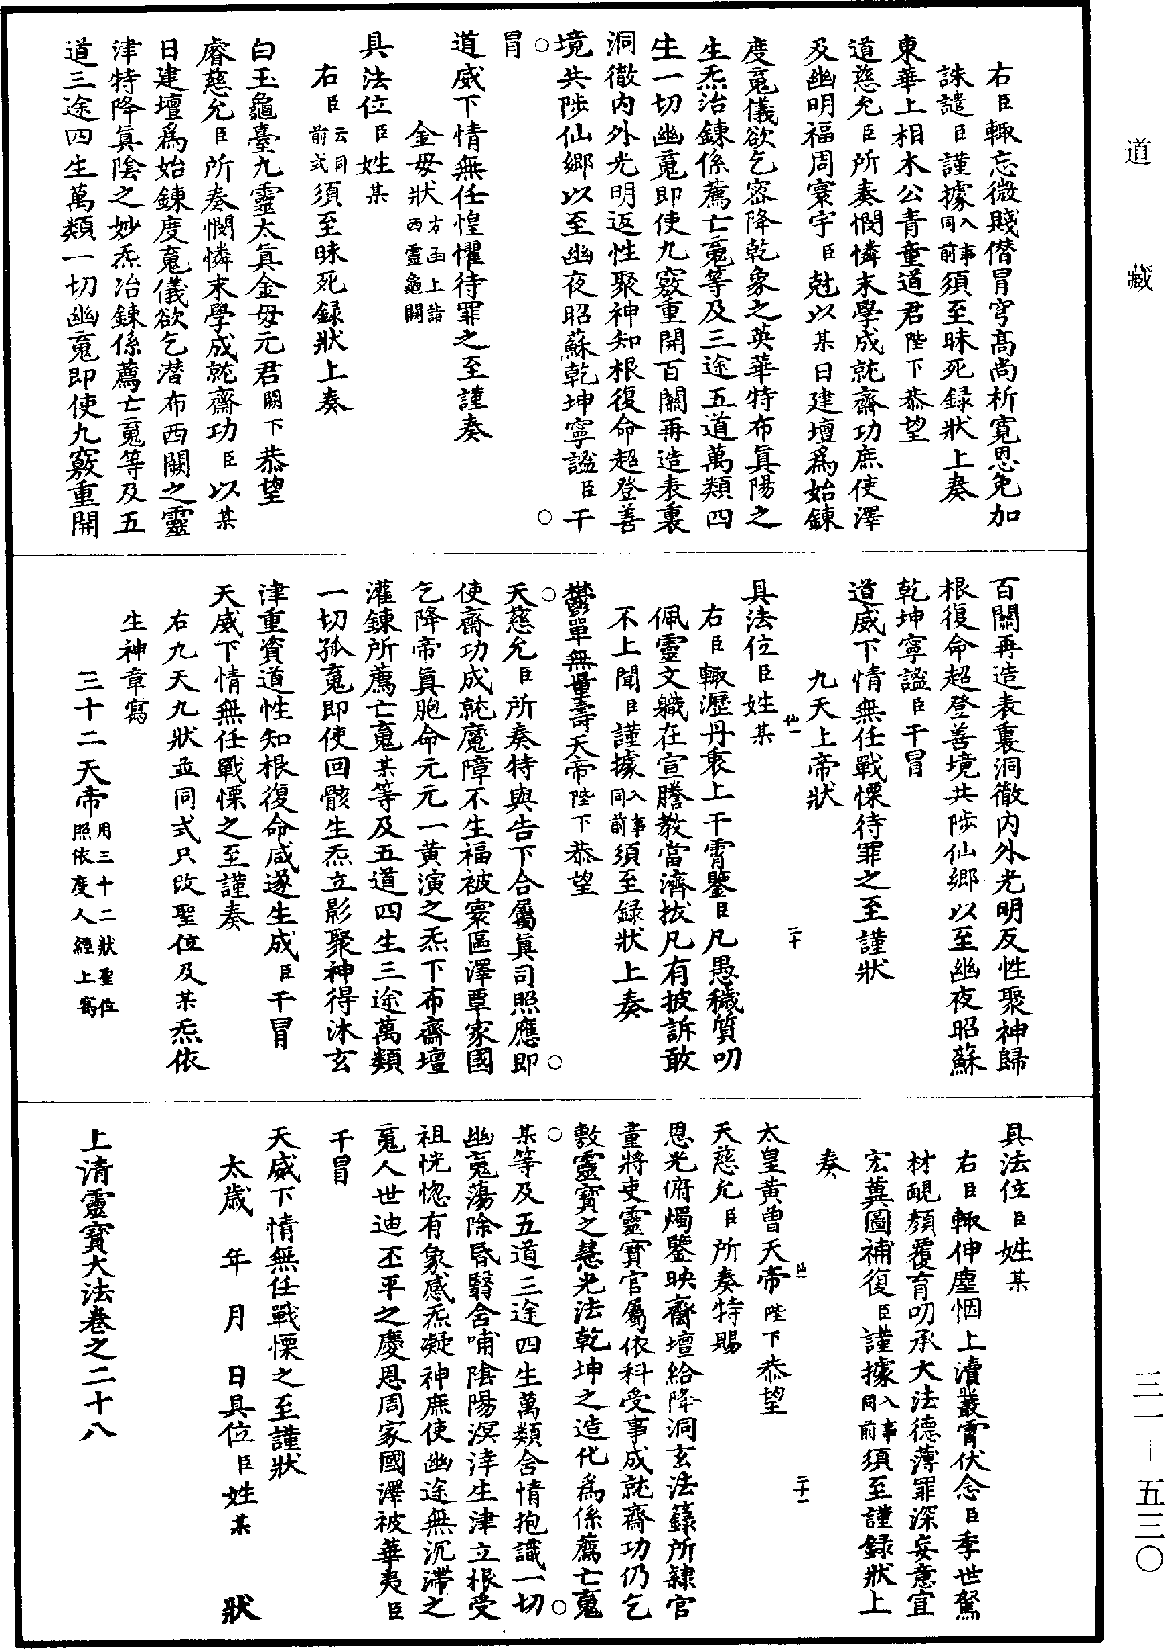 道藏
右臣輒忘微賤僭冒穹高尚祈寬恩免加
誅譴臣謹據入事同前須至昧死録狀上奏
東華上相木公青童道君陛下恭望
道慈允臣所奏憫憐末學成就齋功庶使澤
及幽明福周寰宇臣尅以某日建壇爲始鍊
度䰟儀欲乞宻降乾象之英華特布真陽之
生炁治鍊係薦亡䰟等及三途五道萬類四
生一切幽䰟即使九竅重開百關再造表裏
洞徹内外光明返性聚神知根復命超登善
境共陟仙鄉以至幽夜昭蘇乾坤寧謐臣干
○○
冒
道威下情無任惶懼待罪之至謹奏
金母狀方函上詣西靈龜闕
具法位臣姓某
右臣云同前式須至昧死録狀上奏
白玉龜臺九靈太真金母元君闕下恭望
睿慈允臣所奏憫憐末學成就齋功臣以某
日建壇爲始鍊度䰟儀欲乞潜布西關之靈
津特降真陰之妙炁冶鍊係薦亡䰟等及五
道三途四生萬類一切幽䰟即使九竅重開
百關再造表裏洞徹内外光明反性聚神歸
根復命超登善境共陟仙鄉以至幽夜昭蘇
乾坤寧謐臣干冒
道威下情無任戰慄待罪之至謹狀
九天上帝狀
仙一 二十
具法位臣姓某
右臣輒瀝丹衷上干霄鑒臣凡愚穢質叨
佩靈文職在宣謄教當濟拔凡有披訴敢
不上聞臣謹據入事同前須至録狀上奏
鬱單無量壽天帝陛下恭望
○○
天慈允臣所奏特與告下合屬真司照應即
使齋功成就魔障不生福被寰區澤覃家國
乞降帝真胞命元元一黄演之炁下布齋壇
灌鍊所薦亡䰟某等及五道四生三途萬類
一切孤䰟即使回骸生炁立影聚神得沐玄
津重資道性知根復命咸遂生成臣干冒
天威下情無任戰慄之至謹奏
右九天九狀並同式只改聖位及某炁依
生神章寫
三十二天帝用三十二狀聖位照依度人經上寫
具法位臣姓某
右臣輒伸塵悃上瀆叢霄伏念臣季世駑
材靦顏覆育叨承大法德薄罪深妄意宜
宏冀圖補復臣謹據入事同前須至謹録狀上
奏
太皇黄曾天帝陛下恭望
仙一 二十一
天慈允臣所奏特賜
恩光俯燭鑒映齋壇給降洞玄法籙所隷官
童將吏靈寶官屬依科受事成就齋功仍乞
敷靈寶之慧光法乾坤之造化爲係薦亡䰟
○○
某等及五道三途四生萬類含情抱識一切
幽䰟蕩除昏翳含哺陰陽溟涬生津立根受
祖恍惚有象感炁凝神庶使幽途無沉滯之
䰟人世迪丕平之慶恩周家國澤被華夷臣
干冒
天威下情無任戰慄之至謹狀
太歲 年 月 日具位臣姓某 狀
上清靈寶大法卷之二十八
三一－五三〇